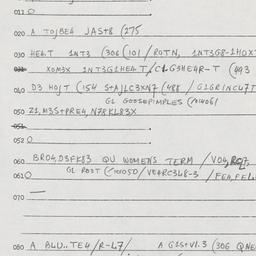 011 O
020 A TOJBE4 JAST8 (275
030 HEAT 1NT3 (306 (101 / ROTN, 1NT3G8-1HOXT
031 XOM3X 1NT3G1HEAT/CLG3HE4R-T (493
040 D3 HOJT (154 S+AJLC3XN7 (488 / G1GRINC47T
G1 GOOSEPIMPLES (
050 Z1, M3S+PRE4, N78KL83X
051
052 O
060 BRO4,D3FK83 QU WOMENS TERM / VO4,
0610 G1 ROOT ( / VEARC3L8-3 / FEA, FEL
070
080 A BLU..TE4 /R-L7/ A G1S+V1.3 (306 QNE